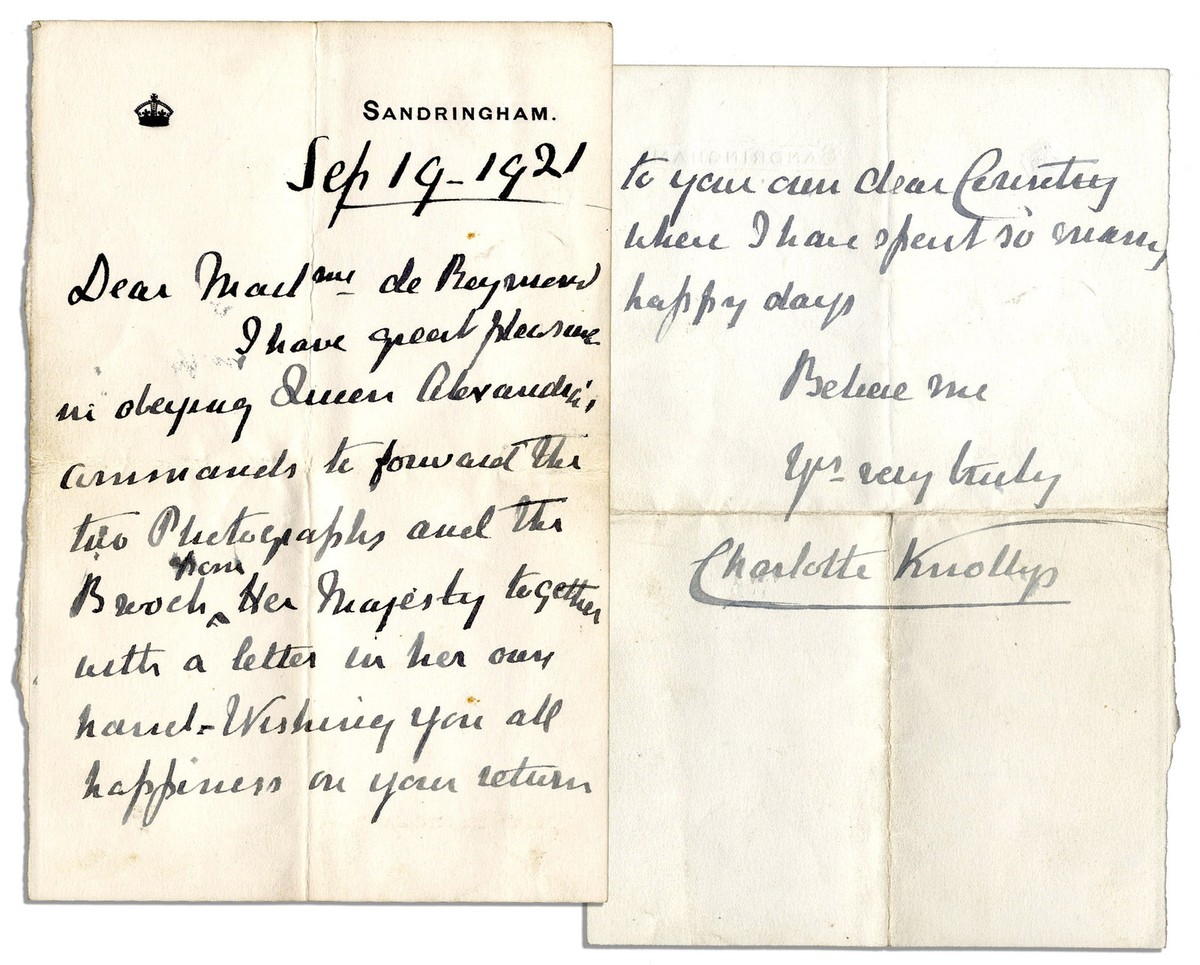 SANDRINGHAM.
Sep 19-1921
Dear Madme de Reymond
I have great pleasure
in obeying Queen Alexandra's
commands to forward the
two Photographs and the
from
Brooch ‸ Her Majesty together
with a letter in her own
hand - Wishing you all
happiness on your return
to your own dear Country
where I have spent so many
happy days
Believe me
Yrs very truly
Charlotte Knollys